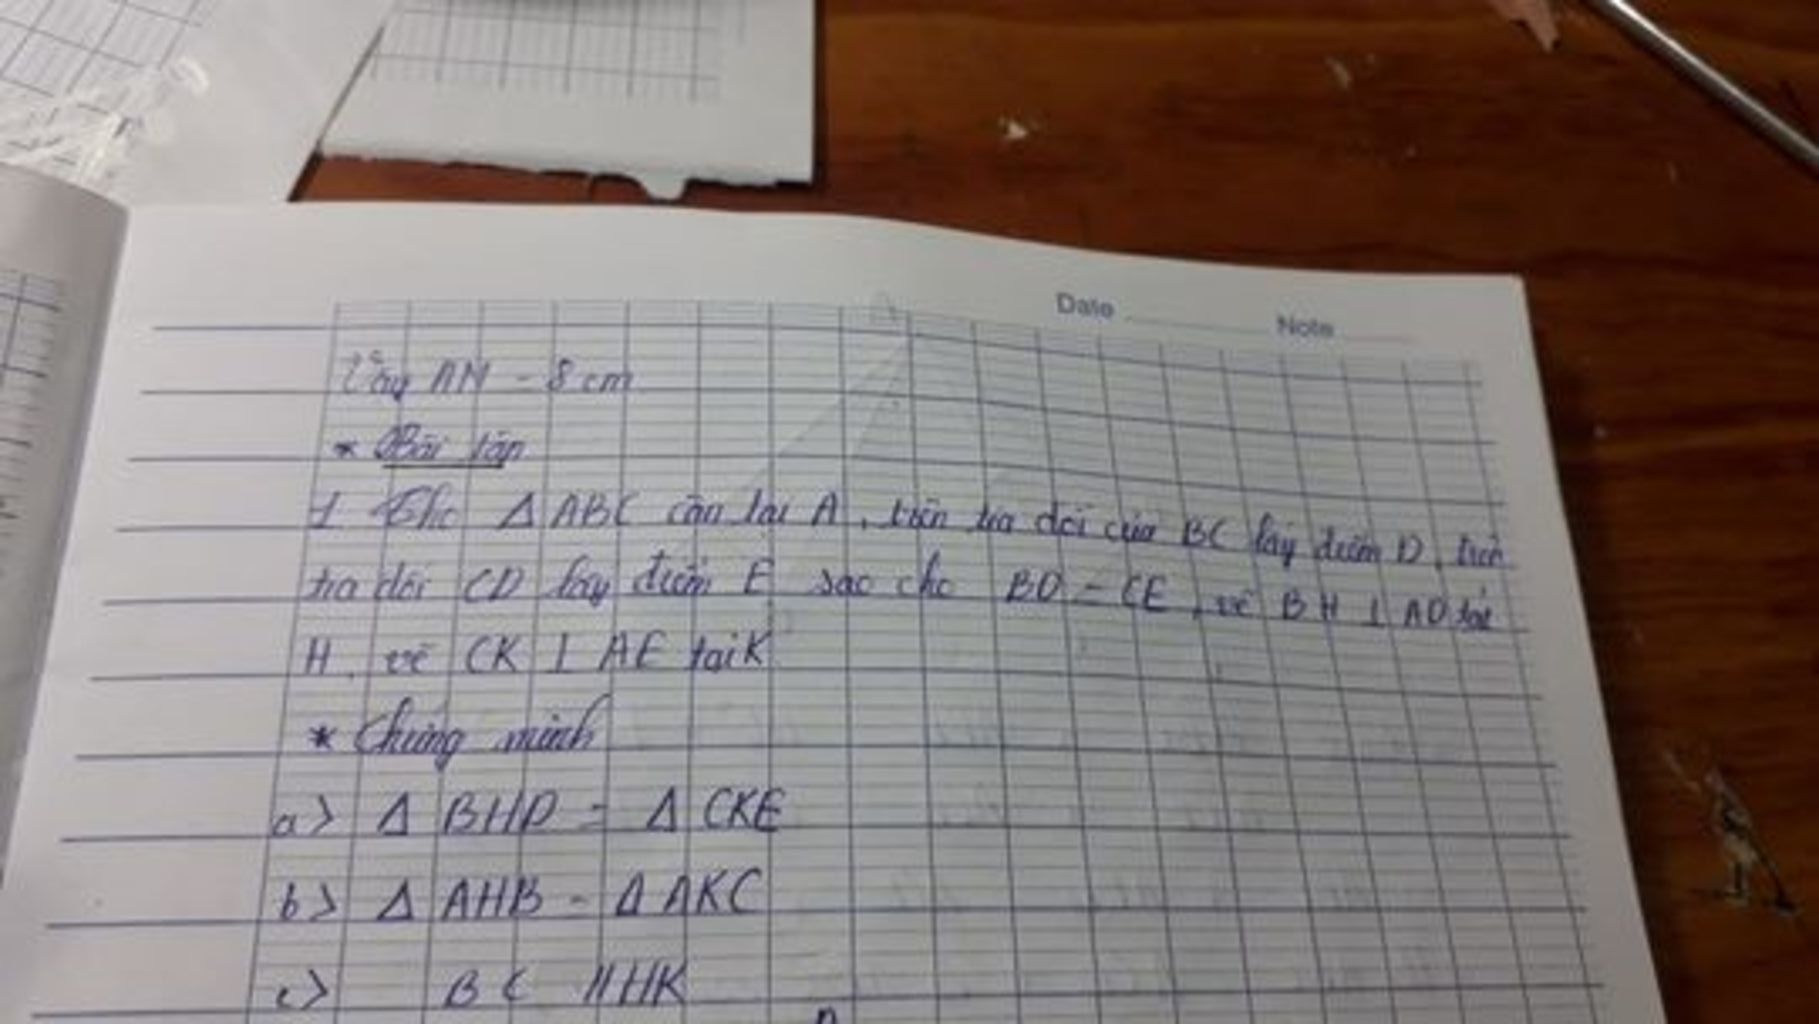 Date Note
Vậy AM = 8 cm
* Bài tập
1 Cho Δ ABC cân tại A, trên tia đối của BC lấy điểm D, trên
tia đối CD lấy điểm E sao cho BD = CE, vẽ BH ⊥ AD tại
H, vẽ CK ⊥ AE tại K
* Chứng minh
a> Δ BHD = Δ CKE
b> Δ AHB = Δ AKC
c> BC // HK